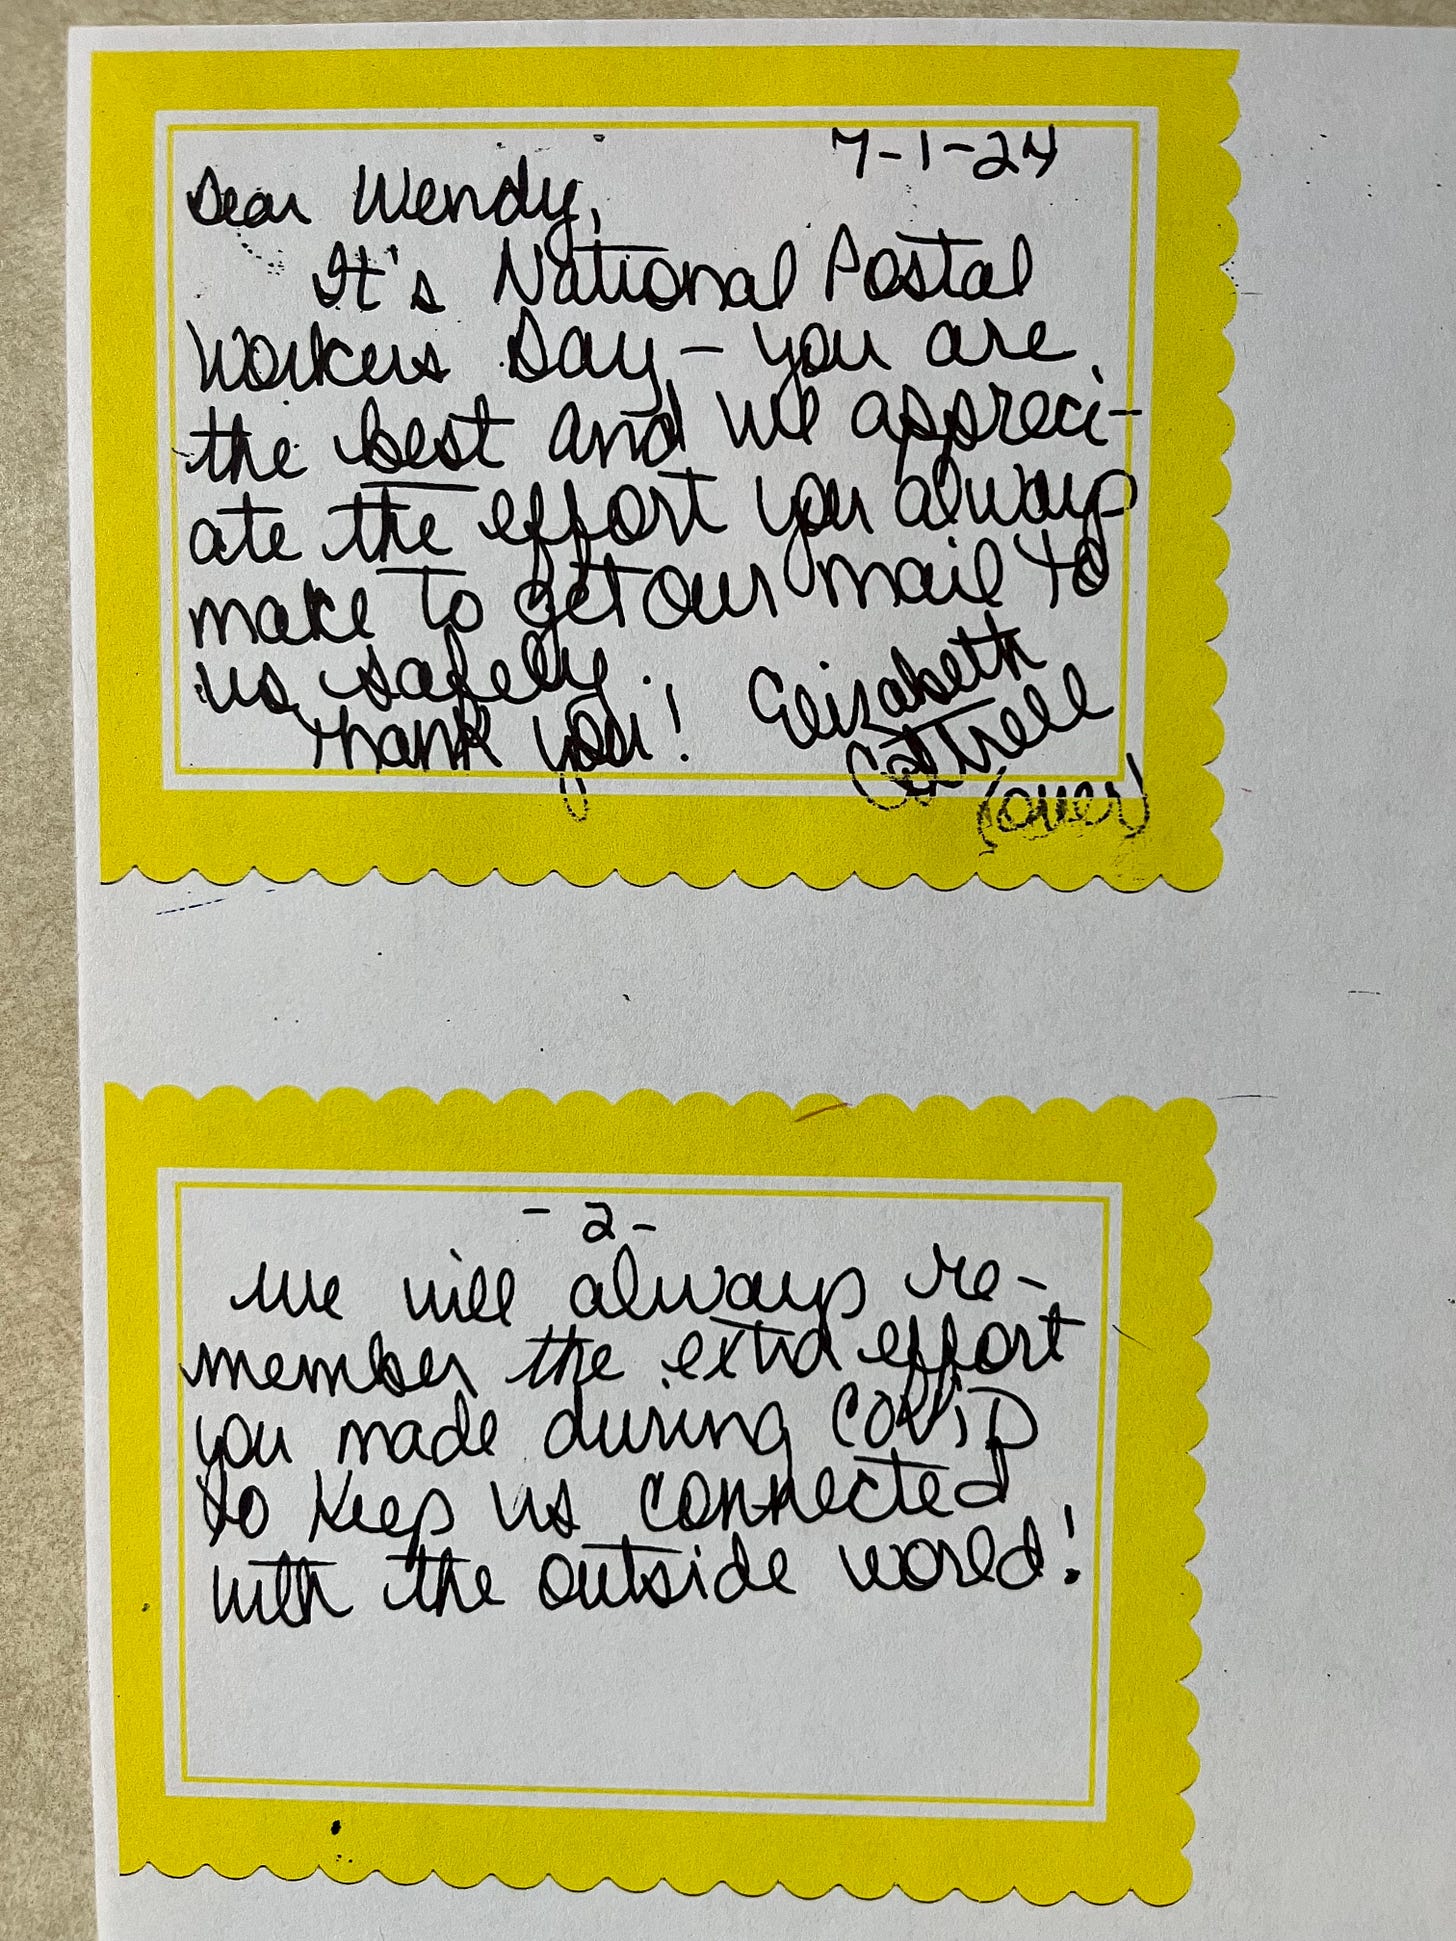 7-1-24
Dear Wendy,
It's National Postal
Workers Day - you are
the best and we appreci-
ate the effort you always
make to get our mail to
us safely.
Thank you! Elizabeth
Cottrell
(over)
- 2 -
We will always re-
member the extra effort
you made during COVID
to keep us connected
with the outside world!